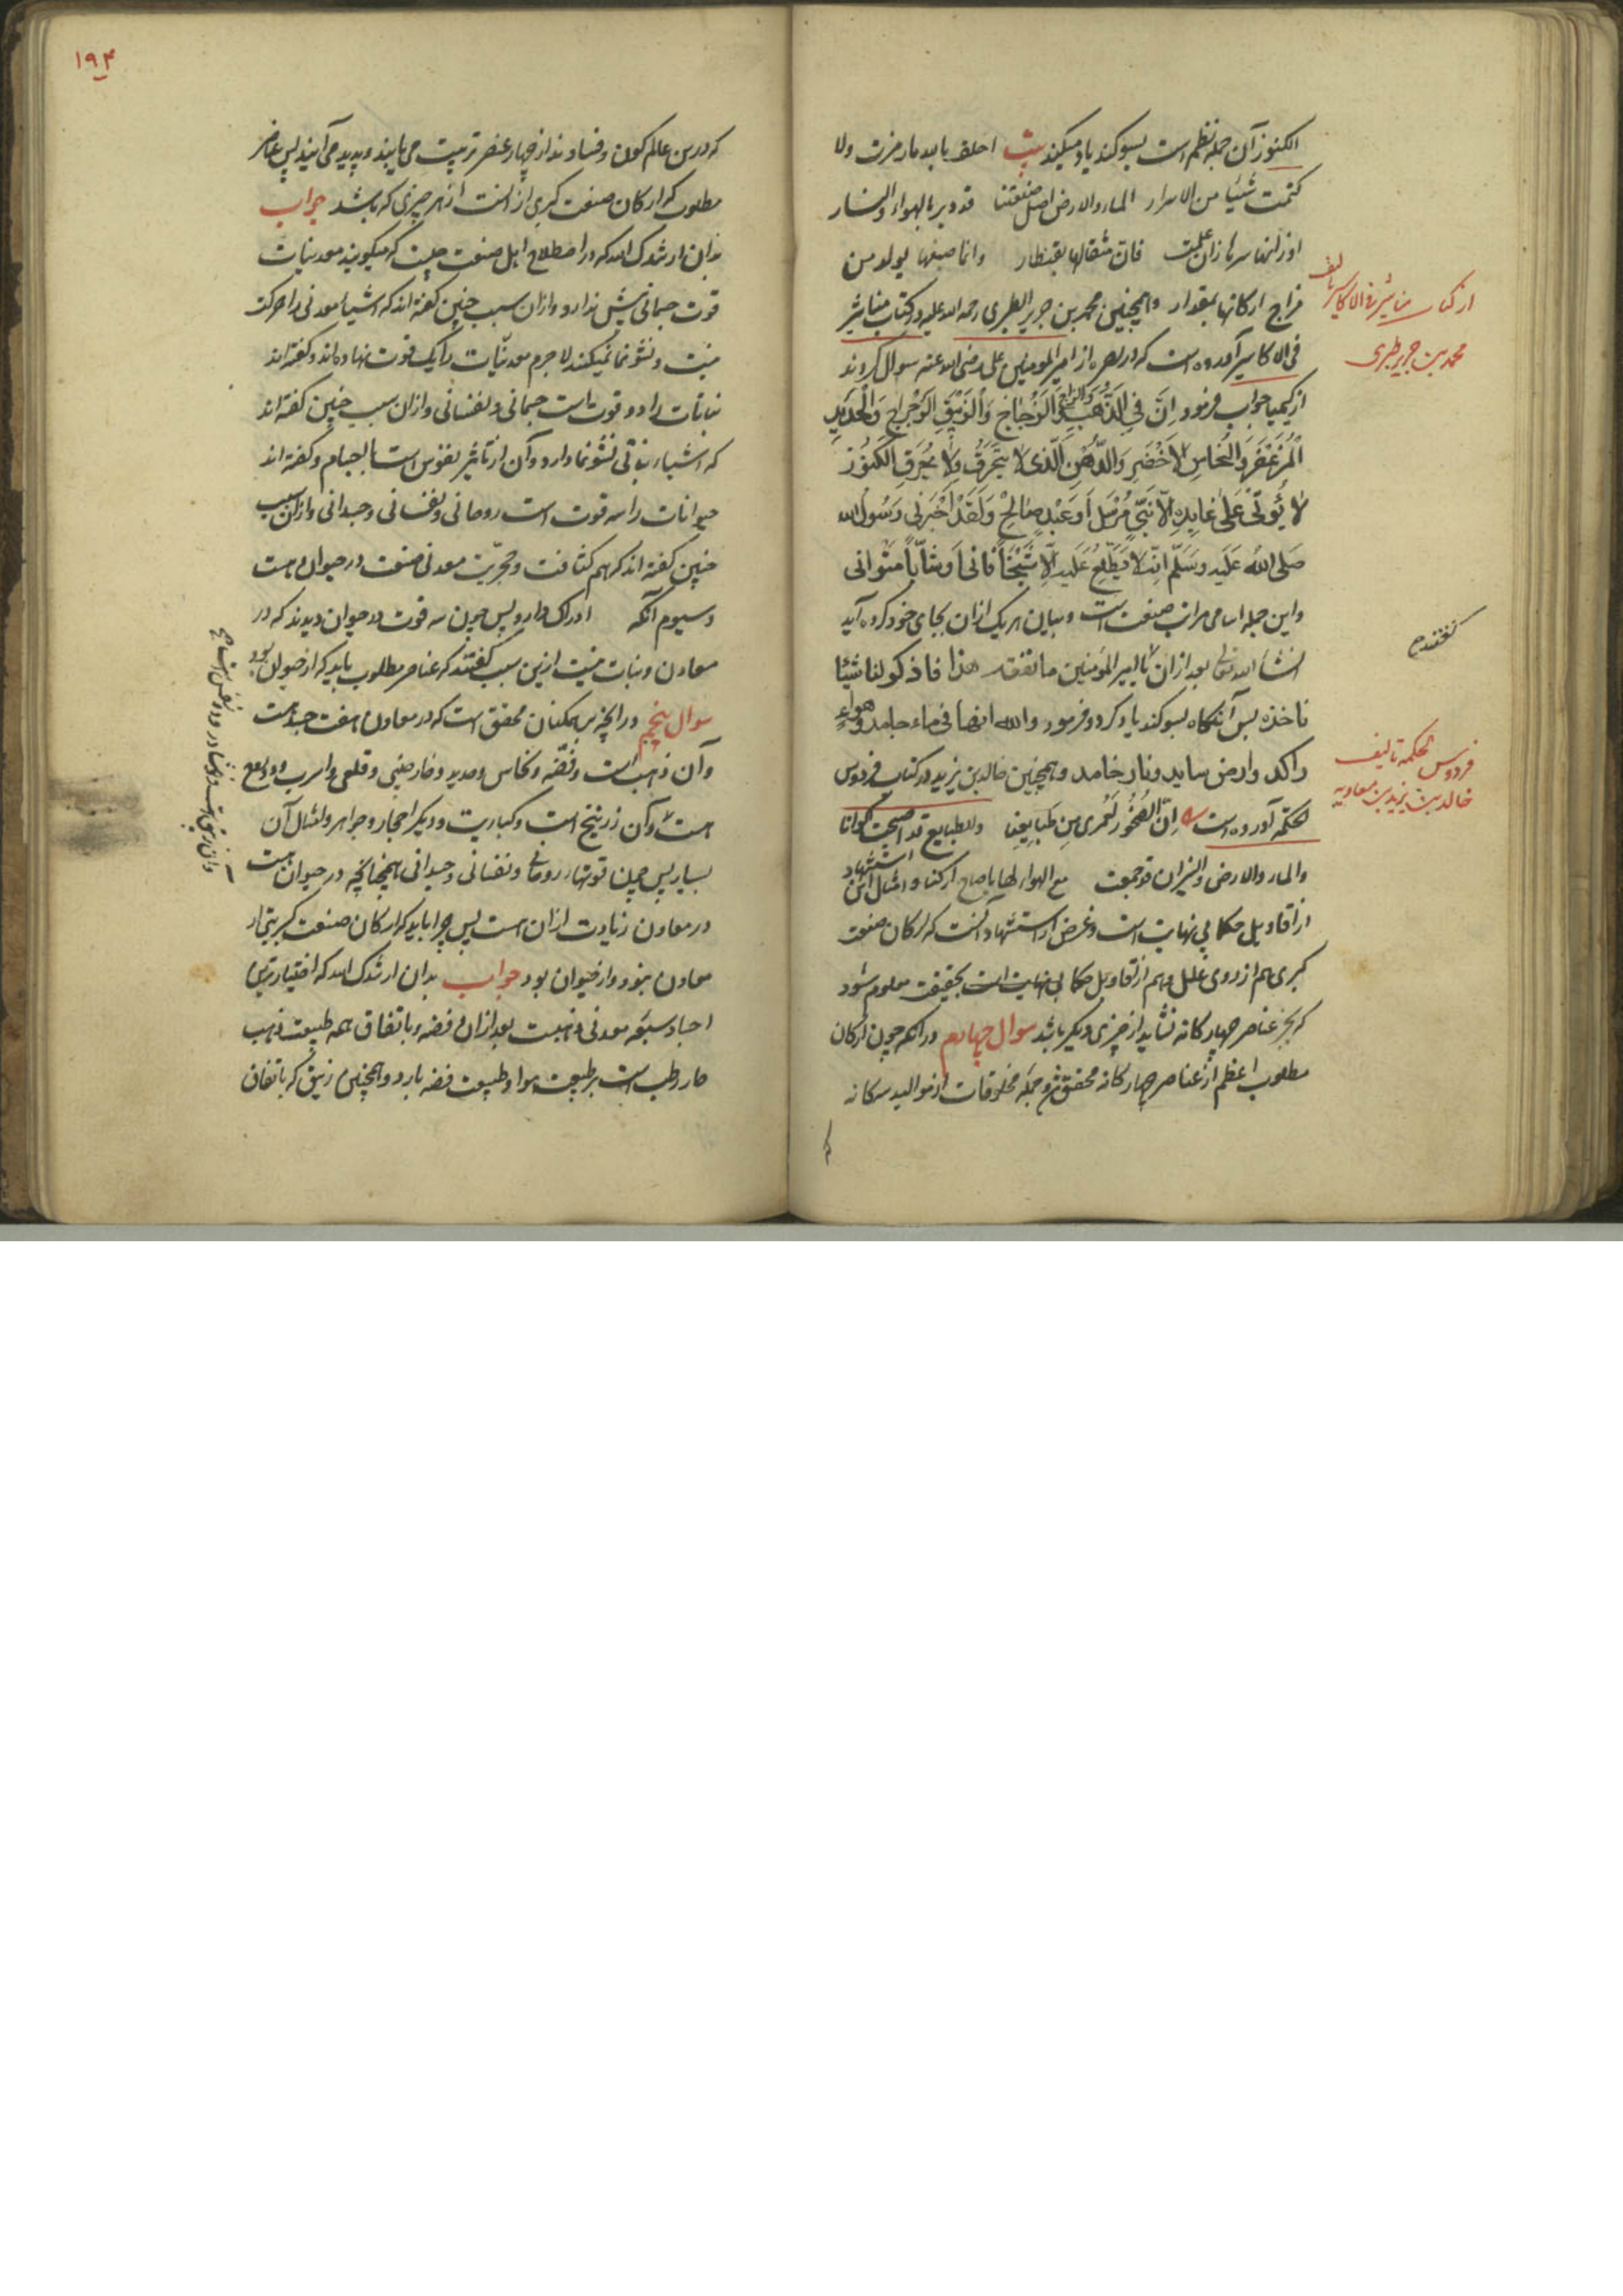 الکنوز آن جمله نظم است بسوکند یاد میکند بیت احلف بالله ولا
کتمت شیئا من الاسرار الماء والارض اصل صنعتنا قد دبر بالهواء والنار
فان مثقالها بقنطار وانما صبغها
مزاج ارکانها بمقدار و همچنین محمد بن جریر الطبری رحمة الله علیه در کتاب مناثیر
فی الاکاسیر آورده است که در بصره از امیر المومنین علی رضی الله عنه سوال کردند
از کیمیا جواب فرمود اِنَّ فِی الذَّهَبِ وَالزّاج وَالزُّجَاجِ وَالزَّیْبَقِ الرَّجْرَاجِ وَالْحَدِیدِ
الْمُزَعْفَرِ وَالنُّحَاسِ الْاَخْضَرِ وَالدُّهْنِ الَّذِی لَا یَحْتَرِقُ وَلَا یُحْرِقُ لَکُنُوز
لا یُؤتَی عَلَی غابِرِهِ اِلّا نَبِیّ مُرْسَل اَو عَبْدٍ صَالِح وَلَقَدْ اَخْبَرَنِی رَسُولُ الله
صَلَّی اللهُ عَلَیه وَسَلَّم اَنَّهُ لَا یَطَّلِعُ عَلَیهِ اِلَّا شَیْخاً فَانِیاً وَشَابّاً مُتَوانی
و این جمله اسامی مراتب صنعت است و بیان هر یک از ان بجای خود کرده آید
انشاء الله تعالی بعد ازان یا امیر المومنین ما نفقه هذا فاذکر لنا شیئا
ناخذه پس آنکاه بسوکند یاد کرد و فرمود والله انها فی ماء جامد وهواء
راکد وارض ساید ونار خامد و همچنین خالد بن یزید در کتاب فردوس
الحکمه آورده است اِنَّ الصُّخُورَ لَعُمری مِن طَبَایِعِنا وللطبایع قد اصبحت اکوانا
والماء والارض والنیران قد جمعت مع الهواء لها یا صاح ارکنا و امثال این استشهاد
از اقاویل حکما بی نهایت است و غرض از استشهاد آنست که ارکان صنعت
کبری هم از روی علل و هم از اقاویل حکما بی نهایت است بحقیقت معلوم شود
که بجز عناصر چهارکانه نشاید از چیزی دیکر باشد سوال چهارم در آنکه چون ارکان
مطلوب اعظم از عناصر چهارکانه محقق شد و جمله مخلوقات از موالید سه کانه
از کتاب مناثیر فی الاکاسیر تالیف
محمد بن جریر طبری
کفتند ح
فردوس الحکمه تالیف
خالد بن یزید بن معاویه
۱۹۴
که درین عالم کون و فسادند از چهار عنصر تربیت می یابند و پدید می آیند پس عناصر
مطلوب که ارکان صنعت کبری از انست از هر چیزی که باشد جواب
بدان ارشدک الله که در اصطلاح اهل صنعت چنین است که میکویند معدنیات
قوت جسمانی بیش ندارد و ازان سبب چنین کفته اند که اشیاء معدنی را حرکت
نیست و نشو نما نمیکنند لاجرم معدنیات را یک قوت نهاده اند و کفته اند
نباتات را دو قوت است جسمانی و نفسانی و ازان سبب چنین کفته اند
که اشیاء نباتی نشو نما دارد و آن از تاثیر نفوس است باجسام و کفته اند
حیوانات را سه قوت است روحانی و نفسانی و جسدانی و ازان سبب
چنین کفته اند که هم کثافت و حجریت معدنی صفت در حیوان هست
و سیوم آنکه ادراک دارد پس چون سه قوت در حیوان دیدند که در
معادن و نبات نیست ازین سبب کفتند که عناصر مطلوب باید که از حیوان بود
سوال پنجم در آنچه بر همکنان محقق است که در معادن هفت جسد است
و آن ذهب است و فضه و نحاس و حدید و خارصینی و قلعی و اسرب و دو
است و آن زرنیخ است و کباریت و دیکر احجار و جواهر و امثال آن
بسیار پس چون قوتهاء روحانی و نفسانی و جسدانی همچنانچه در حیوان هست
در معادن زیادت از ان است پس چرا باید که ارکان صنعت کبری از
معادن نبود و از حیوان بود جواب بدان ارشدک الله که اختیارترین
اجساد سبعه معدنی ذهبست بعد ازان فضه و باتفاق همه طبیعت ذهب
حار رطب است بر طبیعت هوا و طبیعت فضه بارد و همچنین زیبق که باتفاق